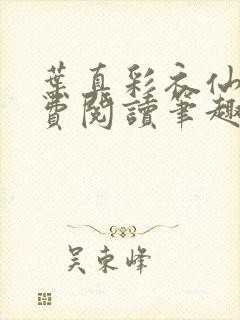 葉真彩衣仙
費閱讀筆趣
吴東峰